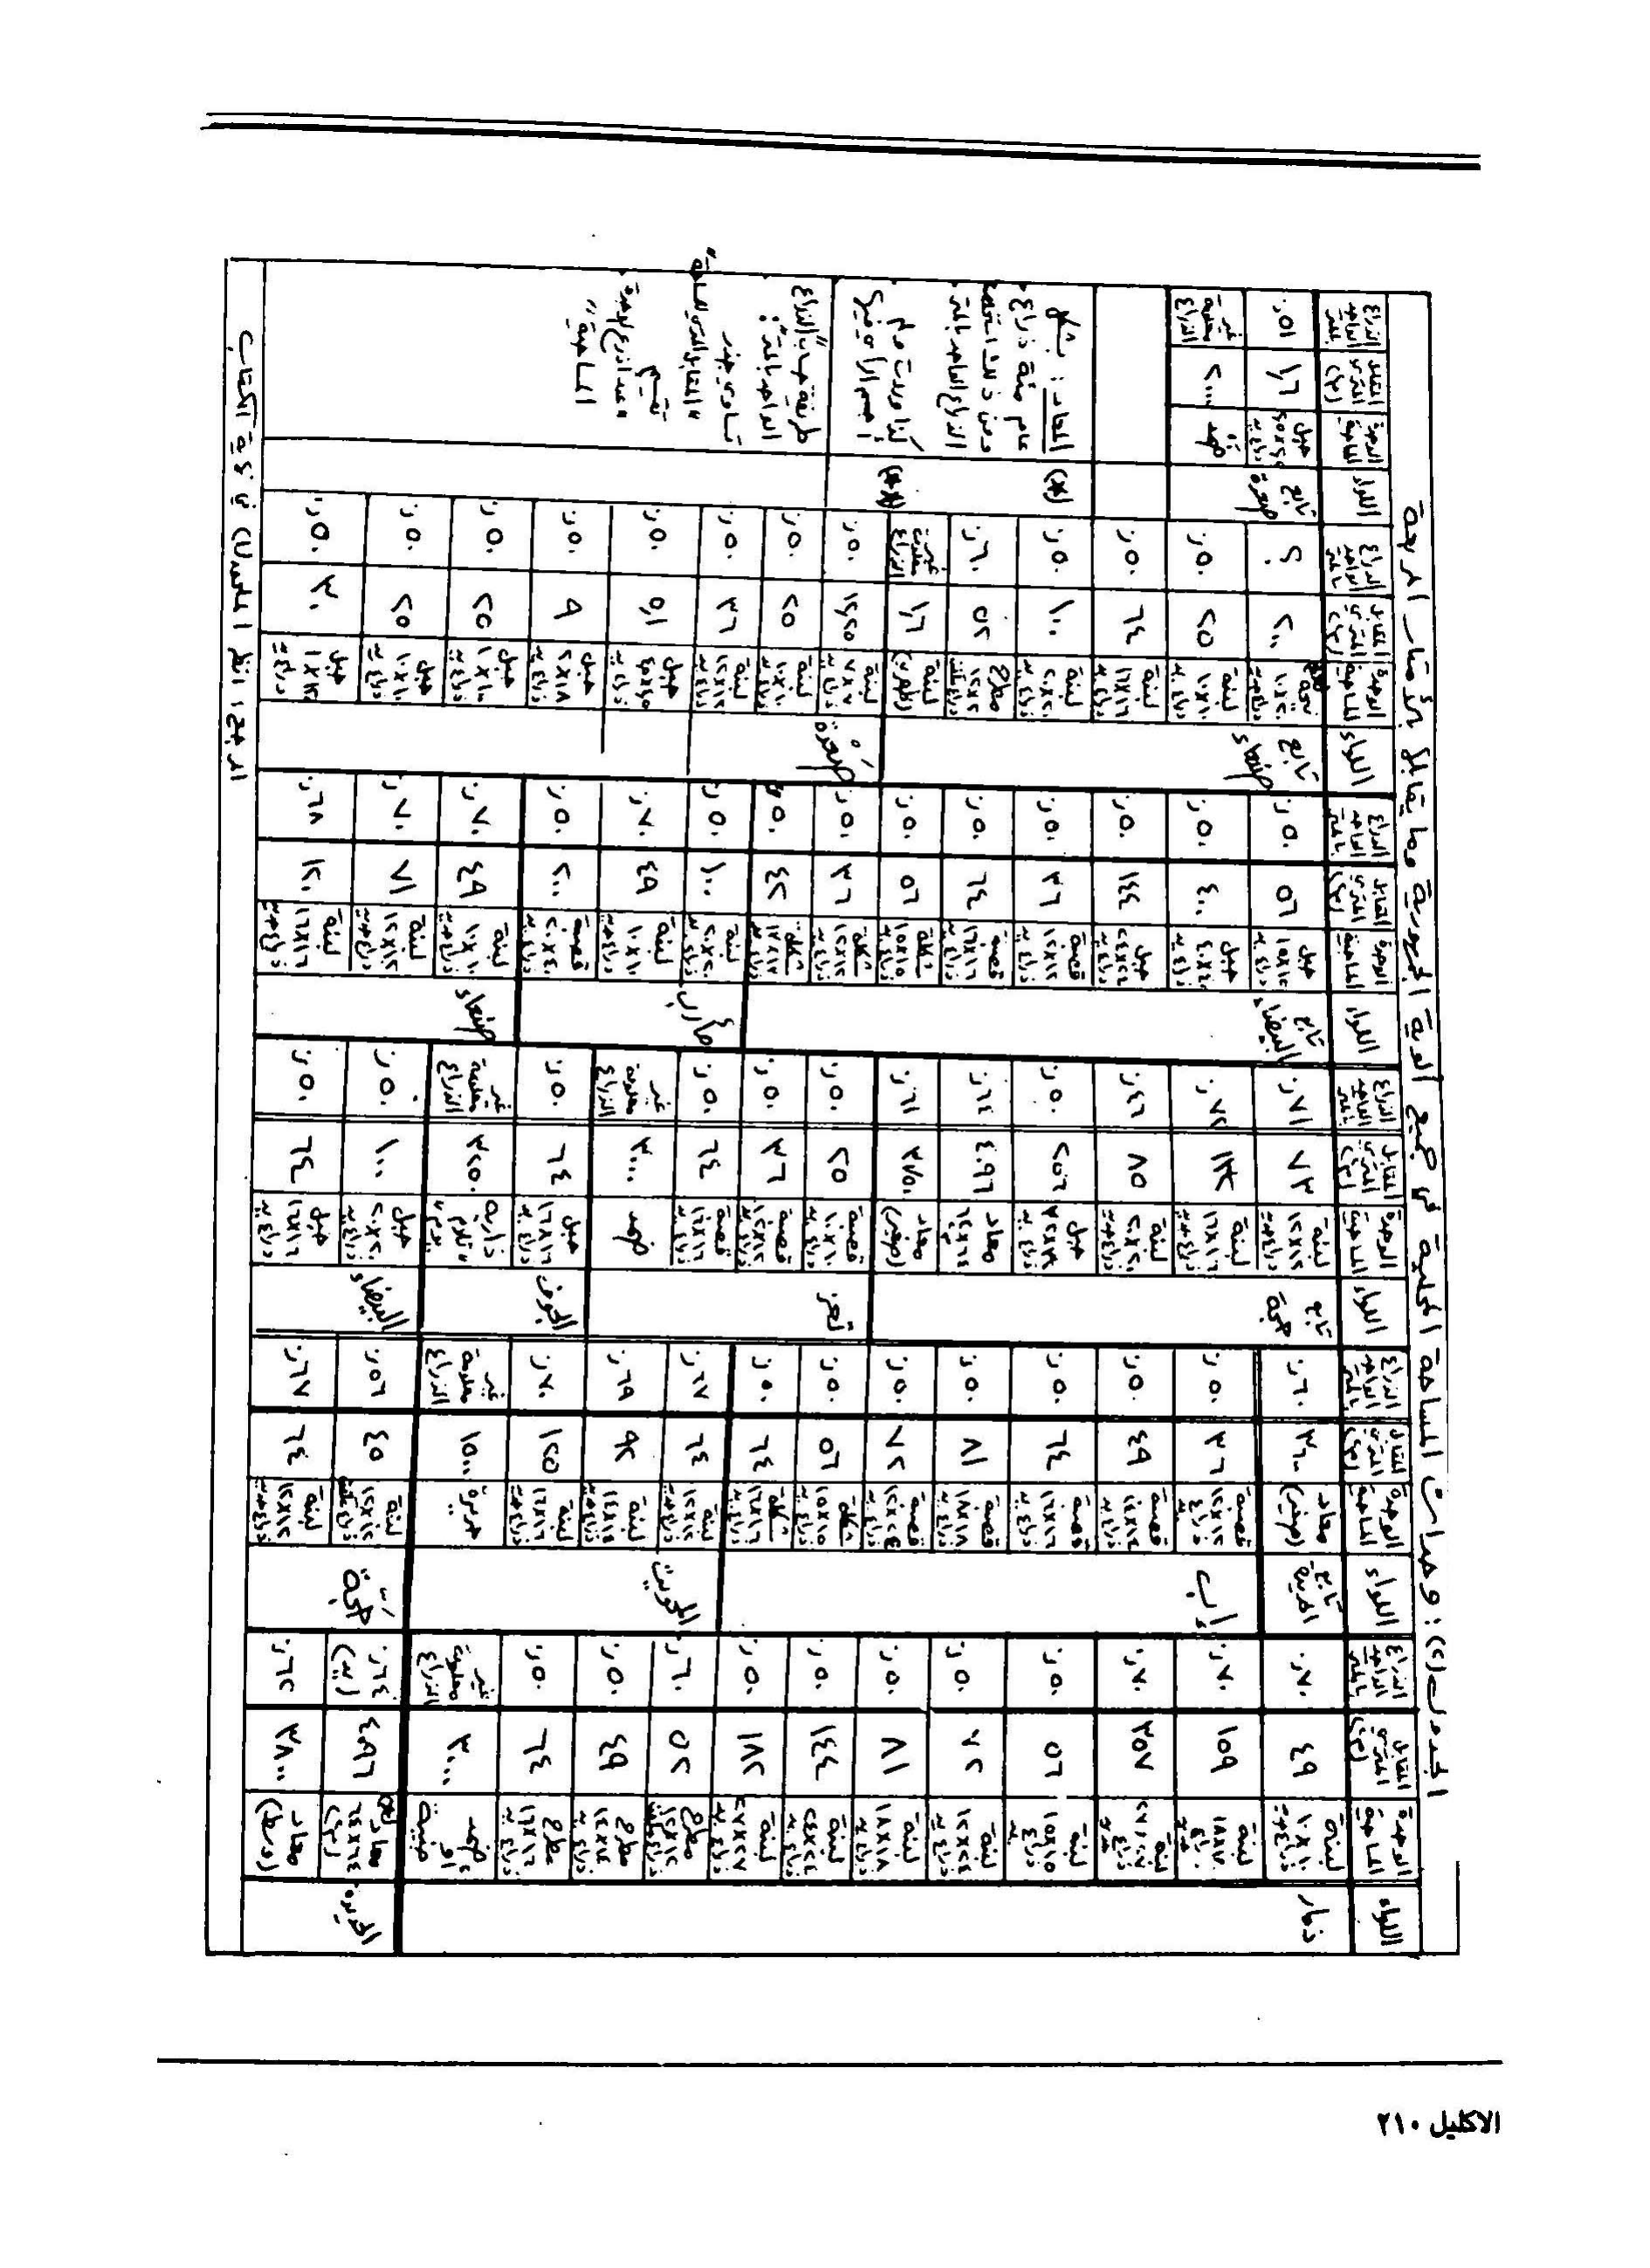 الجدول (٢): وحدات المساحة المحلية في جميع ألوية الجمهورية وما يقابلها بالأمتار المربعة
اللواء | الوحدة المساحية | المقابل المتري (م٢) | الذراع الواحد بالمتر
ذمار | لبنة ١٠X١٠ ذراع حديد | ٤٩ | ٧٠ر.
لبنة | ١٥٩ | ٧٠ر.
لبنة | ٣٥٧ | ٧٠ر.
لبنة ١٥X١٥ ذراع يد | ٥٦ | ٥٠ر.
لبنة ١٢X٢٤ ذراع يد | ٧٢ | ٥٠ر.
لبنة ١٨X١٨ ذراع يد | ٨١ | ٥٠ر.
لبنة ٢٤X٢٤ ذراع يد | ١٤٤ | ٥٠ر.
لبنة ٢٧X٢٧ ذراع يد | ١٨٢ | ٥٠ر.
مطرح ١٢X١٢ ذراع | ٥٢ | ٦٠ر.
مطرح ١٤X١٤ ذراع يد | ٤٩ | ٥٠ر.
مطرح ١٦X١٦ ذراع يد | ٦٤ | ٥٠ر.
ضمد أو | ٣٠٠٠ | غير معلومة الذراع
الحديدة | معاد ٦٤X٦٤ | ٤٠٩٦ | ٦٤ر.
معاد (وسط) | ٣٨٠٠ | ٦٢ر.
اللواء | الوحدة المساحية | المقابل المتري (م٢) | الذراع الواحد بالمتر
تابع الحديدة | معاد (صغير) | ٣٦٠٠ | ٦٠ر.
إب | قصبة ١٢X١٢ ذراع يد | ٣٦ | ٥٠ر.
قصبة ١٤X١٤ ذراع يد | ٤٩ | ٥٠ر.
قصبة ١٦X١٦ ذراع يد | ٦٤ | ٥٠ر.
قصبة ١٨X١٨ ذراع يد | ٨١ | ٥٠ر.
قصبة ١٢X٢٤ ذراع يد | ٧٢ | ٥٠ر.
شكلة ١٥X١٥ ذراع يد | ٥٦ | ٥٠ر.
شكلة ١٦X١٦ ذراع يد | ٦٤ | ٥٠ر.
المحويت | لبنة ١٢X١٢ ذراع حديد | ٦٤ | ٦٧ر.
لبنة ١٤X١٤ ذراع حديد | ٩٢ | ٦٩ر.
لبنة ١٦X١٦ ذراع حديد | ١٢٥ | ٧٠ر.
جريرة | ١٥٠٠ | غير معلومة الذراع
حجة | لبنة ١٢X١٢ ذراع | ٤٥ | ٥٦ر.
لبنة ١٢X١٢ ذراع حديد | ٦٤ | ٦٧ر.
اللواء | الوحدة المساحية | المقابل المتري (م٢) | الذراع الواحد بالمتر
تابع حجة | لبنة ١٢X١٢ ذراع حديد | ٧٣ | ٧١ر.
لبنة ١٦X١٦ ذراع حديد | ١٣٢ | ٧٢ر.
لبنة ٢٠X٢٠ ذراع حديد | ٨٥ | ٤٦ر.
حبل ٣٢X٣٢ ذراع يد | ٢٥٦ | ٥٠ر.
معاد ٦٤X٦٤ | ٤٠٩٦ | ٦٤ر.
معاد (صغير) | ٣٧٥٠ | ٦١ر.
تعز | قصبة ١٠X١٠ ذراع يد | ٢٥ | ٥٠ر.
قصبة ١٢X١٢ ذراع يد | ٣٦ | ٥٠ر.
قصبة ١٦X١٦ ذراع يد | ٦٤ | ٥٠ر.
ضمد | ٣٠٠٠ | غير معلومة الذراع
الجوف | حبل ١٦X١٦ ذراع يد | ٦٤ | ٥٠ر.
ذارية "تلام يوم" | ٣٢٥٠ | غير معلومة الذراع
البيضاء | حبل ٢٠X٢٠ ذراع يد | ١٠٠ | ٥٠ر.
حبل ١٦X١٦ ذراع يد | ٦٤ | ٥٠ر.
اللواء | الوحدة المساحية | المقابل المتري (م٢) | الذراع الواحد بالمتر
تابع البيضاء | حبل ١٥X١٥ ذراع يد | ٥٦ | ٥٠ر.
حبل ٤٠X٤٠ ذراع يد | ٤٠٠ | ٥٠ر.
حبل ٢٤X٢٤ ذراع يد | ١٤٤ | ٥٠ر.
قصبة ١٢X١٢ ذراع يد | ٣٦ | ٥٠ر.
قصبة ١٦X١٦ ذراع يد | ٦٤ | ٥٠ر.
شكلة ١٥X١٥ ذراع يد | ٥٦ | ٥٠ر.
شكلة ١٢X١٢ ذراع يد | ٣٦ | ٥٠ر.
شكلة ذراع يد | ٤٢ | ٥٠ر.
مأرب | لبنة ٢٠X٢٠ ذراع يد | ١٠٠ | ٥٠ر.
لبنة ١٠X١٠ ذراع حديد | ٤٩ | ٧٠ر.
قصبة ٢٠X٤٠ ذراع يد | ٢٠٠ | ٥٠ر.
صنعاء | لبنة ١٠X١٠ ذراع حديد | ٤٩ | ٧٠ر.
لبنة ١٢X١٢ ذراع حديد | ٧١ | ٧٠ر.
لبنة ١٦X١٦ ذراع حديد | ١٢٠ | ٦٨ر.
اللواء | الوحدة المساحية | المقابل المتري (م٢) | الذراع الواحد بالمتر
تابع صنعاء | ١٠X٢٠ ذراع | ٢٠٠ | ؟
لبنة ١٠X١٠ ذراع يد | ٢٥ | ٥٠ر.
لبنة ١٦X١٦ ذراع يد | ٦٤ | ٥٠ر.
لبنة ٢٠X٢٠ ذراع يد | ١٠٠ | ٥٠ر.
مطرح ١٢X١٢ ذراع | ٥٢ | ٦٠ر.
لبنة | ١٦ | غير معلومة الذراع
صعدة | لبنة ٧X٧ ذراع يد | ١٢,٢٥ | ٥٠ر.
لبنة ١٠X١٠ ذراع يد | ٢٥ | ٥٠ر.
لبنة ١٢X١٢ ذراع يد | ٣٦ | ٥٠ر.
حبل ذراع يد | ٥,١ | ٥٠ر.
حبل ٢X١٨ ذراع يد | ٩ | ٥٠ر.
حبل ١٠X١٠ ذراع يد | ٢٥ | ٥٠ر.
حبل ١٠X١٠ ذراع يد | ٢٥ | ٥٠ر.
حبل ذراع يد | ٣٠ | ٥٠ر.
اللواء | الوحدة المساحية | المقابل المتري (م٢) | الذراع الواحد بالمتر
تابع صعدة | حبل ذراع يد | ١٦ | ٥١ر.
ضمد | ٢٠٠٠ | غير معلومة الذراع
(*) المعاد: بشكل
عام مئة ذراع
ومن ذلك استخلص
الذراع الواحد بالمتر
(**) كذا وردت ولم
طريقة حساب "الذراع
الواحد بالمتر":
تساوي جذر
"المقابل المتري للمساحة"
تقسيم
"عدد أذرع الوحدة
المساحية"
المرجع: انظر الجدول (١) في نهاية الكتاب
الاكليل ٢١٠